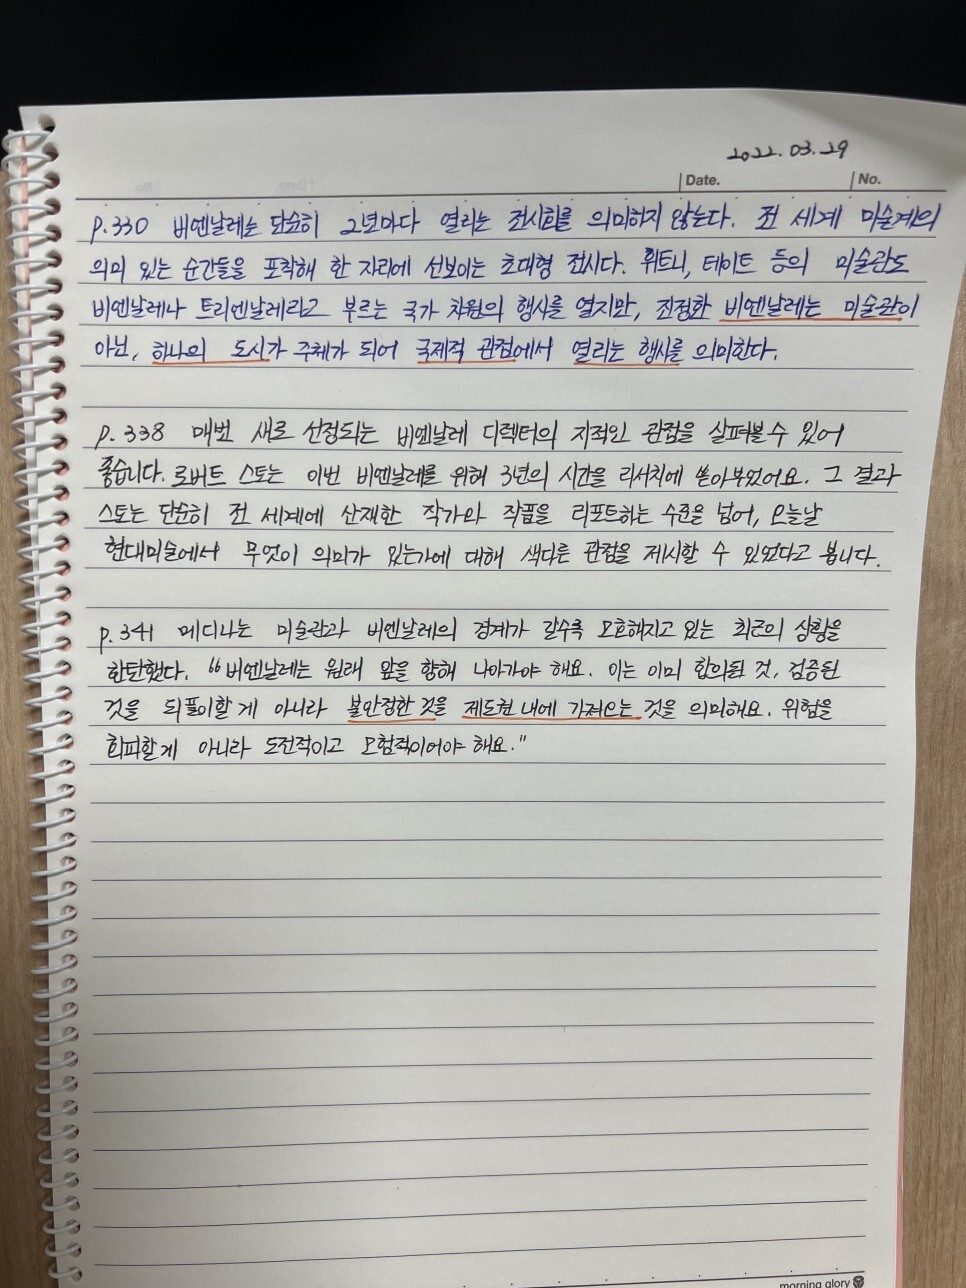 2022.03.29
Date.
No.
p.330 비엔날레는 단순히 2년마다 열리는 전시회를 의미하지 않는다. 전 세계 미술계의
의미 있는 순간들을 포착해 한 자리에 선보이는 초대형 전시다. 휘트니, 테이트 등의 미술관도
비엔날레나 트리엔날레라고 부르는 국가 차원의 행사를 열지만, 진정한 비엔날레는 미술관이
아닌, 하나의 도시가 주체가 되어 국제적 관점에서 열리는 행사를 의미한다.
p. 338 매번 새로 선정되는 비엔날레 디렉터의 지적인 관점을 살펴볼 수 있어
좋습니다. 로버트 스토는 이번 비엔날레를 위해 3년의 시간을 리서치에 쏟아부었어요. 그 결과
스토는 단순히 전 세계에 산재한 작가와 작품을 리포트하는 수준을 넘어, 오늘날
현대미술에서 무엇이 의미가 있는가에 대해 색다른 관점을 제시할 수 있었다고 봅니다.
p. 341 메디나는 미술관과 비엔날레의 경계가 갈수록 모호해지고 있는 최근의 상황을
한탄했다. "비엔날레는 원래 앞을 향해 나아가야 해요. 이는 이미 합의된 것, 검증된
것을 되풀이할 게 아니라 불안정한 것을 제도권 내에 가져오는 것을 의미해요. 위험을
회피할 게 아니라 도전적이고 모험적이어야 해요."
morning glory